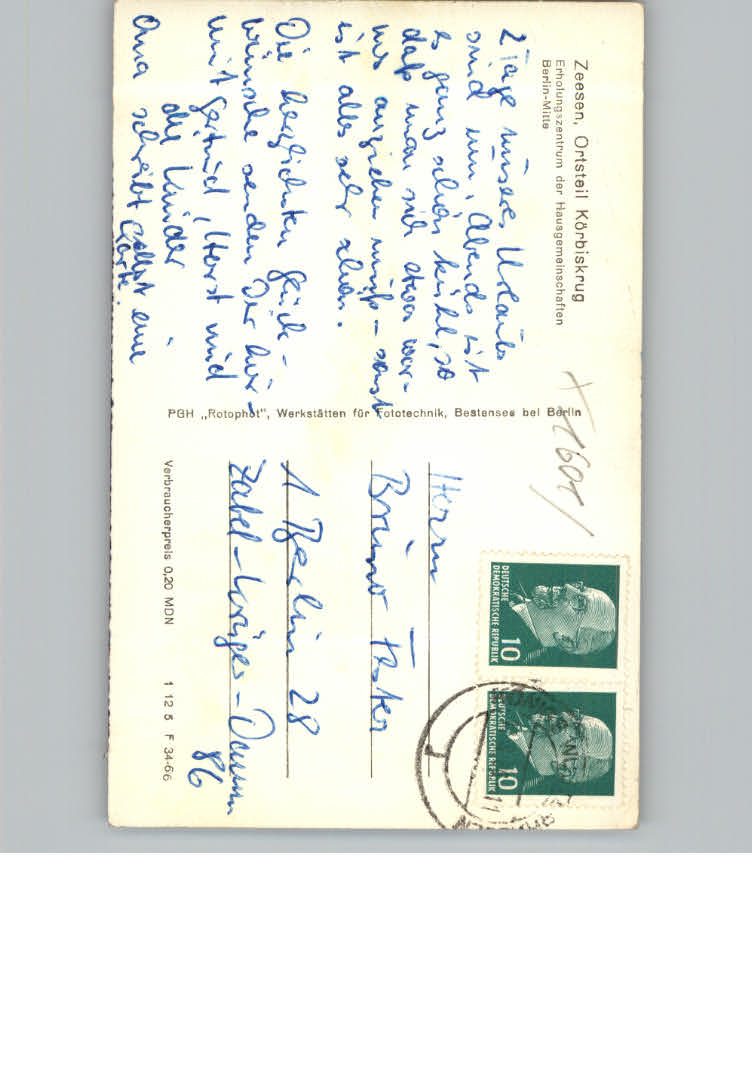 Zeesen, Ortsteil Körbiskrug
Erholungszentrum der Hausgemeinschaften
Berlin-Mitte
2 Tage unseres Urlaubs
sind um, Abends ist
es ganz schön kühl, so
daß man sich etwas war-
mes anziehen muß - sonst
ist alles sehr schön.
Die herzlichsten Glück-
wünsche senden Dir hier-
mit Gertrud, Horst und
die Kinder
Oma schreibt selbst eine
Karte.
PGH „Rotophot", Werkstätten für Fototechnik, Bestensee bei Berlin
X 1601/
Herrn
Bruno
1 Berlin 28
Zabel-Krüger-Damm
86
Verbraucherpreis 0,20 MDN
1 12 5 F 34-66
DEUTSCHE
DEMOKRATISCHE REPUBLIK
10
DEUTSCHE
DEMOKRATISCHE REPUBLIK
10